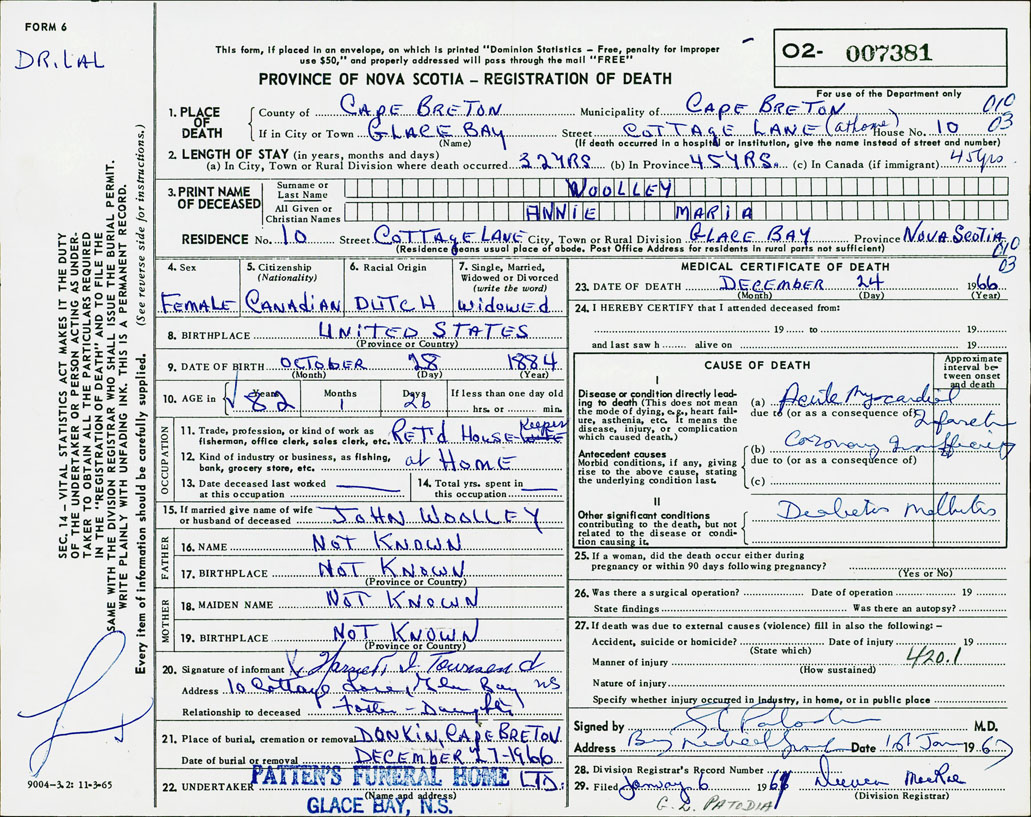 FORM 6
DR. LAL
This form, if placed in an envelope, on which is printed "Dominion Statistics - Free, penalty for improper
use $50," and properly addressed will pass through the mail "FREE"
PROVINCE OF NOVA SCOTIA - REGISTRATION OF DEATH
02- 007381
For use of the Department only
010
03
1. PLACE OF DEATH
County of CAPE BRETON Municipality of CAPE BRETON
If in City or Town GLACE BAY Street COTTAGE LANE (at home) House No. 10
(Name) (If death occurred in a hospital or institution, give the name instead of street and number)
2. LENGTH OF STAY (in years, months and days)
(a) In City, Town or Rural Division where death occurred 32 YRS (b) In Province 45 YRS. (c) In Canada (if immigrant) 45 yrs
3. PRINT NAME OF DECEASED
Surname or Last Name WOOLLEY
All Given or Christian Names ANNIE MARIA
RESIDENCE No. 10 Street COTTAGE LANE City, Town or Rural Division GLACE BAY Province NOVA SCOTIA
(Residence means usual place of abode. Post Office Address for residents in rural parts not sufficient)
010
03
4. Sex FEMALE
5. Citizenship (Nationality) CANADIAN
6. Racial Origin DUTCH
7. Single, Married, Widowed or Divorced (write the word) WIDOWED
8. BIRTHPLACE UNITED STATES
(Province or Country)
9. DATE OF BIRTH OCTOBER 28 1884
(Month) (Day) (Year)
10. AGE in Years 82 Months 1 Days 26 If less than one day old
hrs. or min.
OCCUPATION
11. Trade, profession, or kind of work as fisherman, office clerk, sales clerk, etc. RET'D HOUSE Keeper
12. Kind of industry or business, as fishing, bank, grocery store, etc. at HOME
13. Date deceased last worked at this occupation
14. Total yrs. spent in this occupation
15. If married give name of wife or husband of deceased JOHN WOOLLEY
FATHER
16. NAME NOT KNOWN
17. BIRTHPLACE NOT KNOWN
(Province or Country)
MOTHER
18. MAIDEN NAME NOT KNOWN
19. BIRTHPLACE NOT KNOWN
(Province or Country)
20. Signature of informant X Harriet I. Townsend
Address 10 Cottage Lane, Glace Bay NS
Relationship to deceased Foster-Daughter
21. Place of burial, cremation or removal DONKIN, CAPE BRETON
Date of burial or removal DECEMBER 27-1966
22. UNDERTAKER PATTEN'S FUNERAL HOME LTD.
(Name and address)
GLACE BAY, N.S.
MEDICAL CERTIFICATE OF DEATH
23. DATE OF DEATH DECEMBER 24 1966
(Month) (Day) (Year)
24. I HEREBY CERTIFY that I attended deceased from:
19 to 19
and last saw h alive on 19
CAUSE OF DEATH
Approximate interval between onset and death
I
Disease or condition directly leading to death (This does not mean the mode of dying, e.g., heart failure, asthenia, etc. It means the disease, injury, or complication which caused death.)
(a) Acute Myocardial
due to (or as a consequence of) Infarction
Antecedent causes
Morbid conditions, if any, giving rise to the above cause, stating the underlying condition last.
(b) Coronary Insufficiency
due to (or as a consequence of)
(c)
II
Other significant conditions
contributing to the death, but not related to the disease or condition causing it.
Diabetes Mellitus
25. If a woman, did the death occur either during
pregnancy or within 90 days following pregnancy?
(Yes or No)
26. Was there a surgical operation? Date of operation 19
State findings Was there an autopsy?
27. If death was due to external causes (violence) fill in also the following: -
Accident, suicide or homicide? Date of injury 19
(State which)
Manner of injury 420.1
(How sustained)
Nature of injury
Specify whether injury occurred in industry, in home, or in public place
Signed by M.D.
Address Date 1st Jan 1967
28. Division Registrar's Record Number
29. Filed January 6 19 MacRae
(Division Registrar)
G. L. PATODIA
SEC. 14 - VITAL STATISTICS ACT MAKES IT THE DUTY
OF THE UNDERTAKER OR PERSON ACTING AS UNDER-
TAKER TO OBTAIN ALL THE PARTICULARS REQUIRED
IN THE "REGISTRATION OF DEATH" AND TO FILE THE
SAME WITH THE DIVISION REGISTRAR WHO SHALL ISSUE THE BURIAL PERMIT.
WRITE PLAINLY WITH UNFADING INK. THIS IS A PERMANENT RECORD.
Every item of information should be carefully supplied. (See reverse side for instructions.)
9004-3.2: 11-3-65